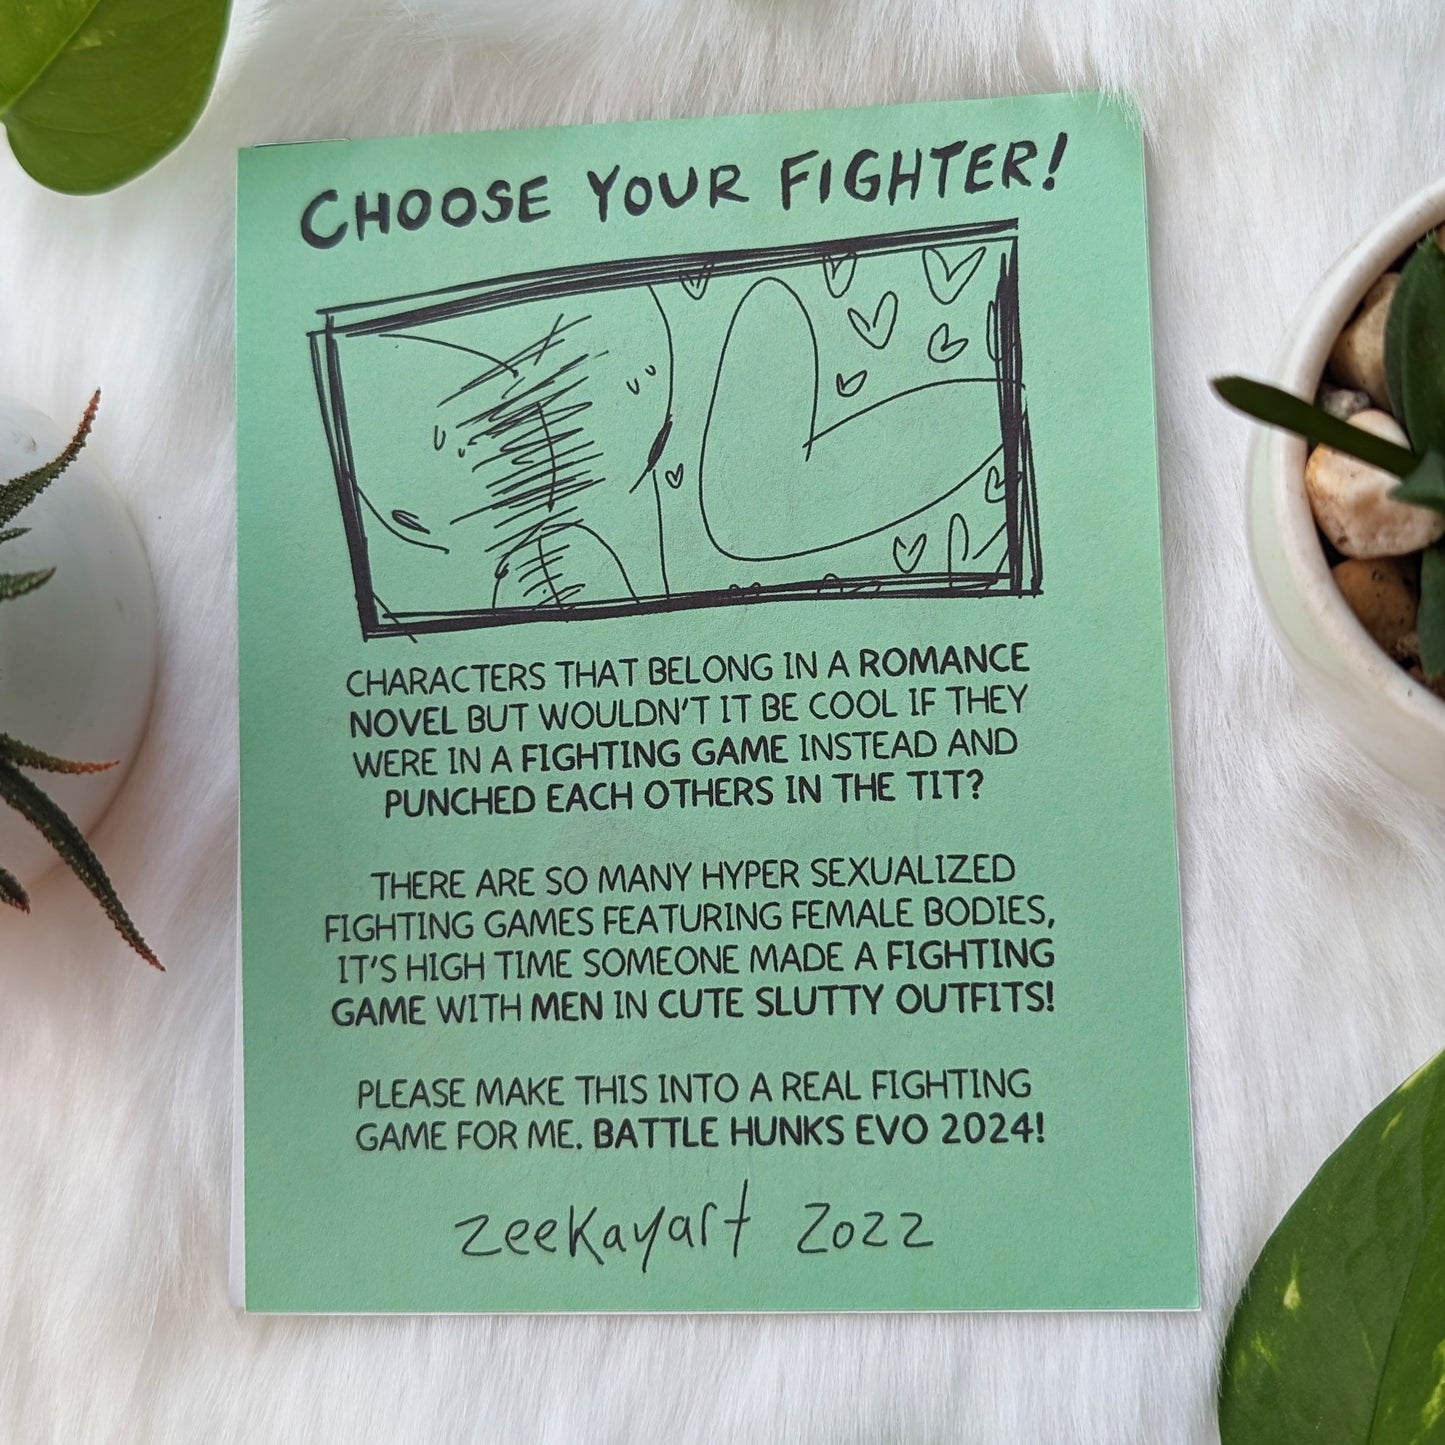 CHOOSE YOUR FIGHTER!
CHARACTERS THAT BELONG IN A ROMANCE
NOVEL BUT WOULDN'T IT BE COOL IF THEY
WERE IN A FIGHTING GAME INSTEAD AND
PUNCHED EACH OTHERS IN THE TIT?
THERE ARE SO MANY HYPER SEXUALIZED
FIGHTING GAMES FEATURING FEMALE BODIES,
IT'S HIGH TIME SOMEONE MADE A FIGHTING
GAME WITH MEN IN CUTE SLUTTY OUTFITS!
PLEASE MAKE THIS INTO A REAL FIGHTING
GAME FOR ME. BATTLE HUNKS EVO 2024!
zeekayart 2022